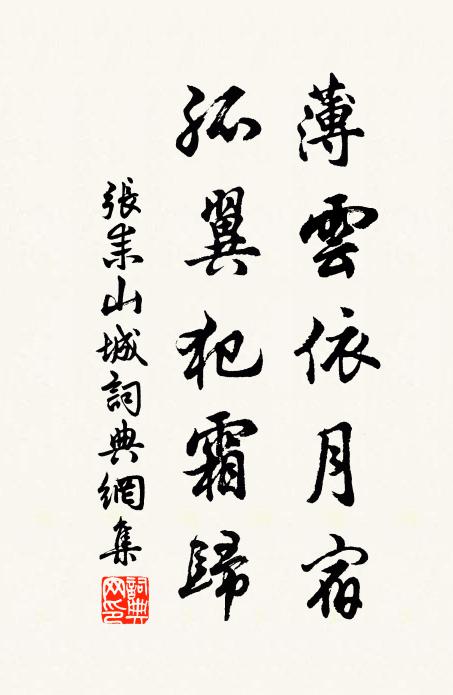 薄雲依月宿
孤翼犯霜歸
張耒山城詞典網集
詞典
网印